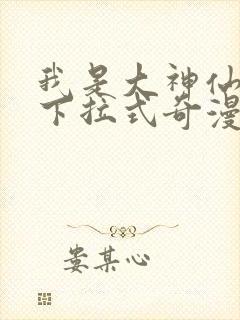 我是大神仙
下拉式奇漫
娄某心